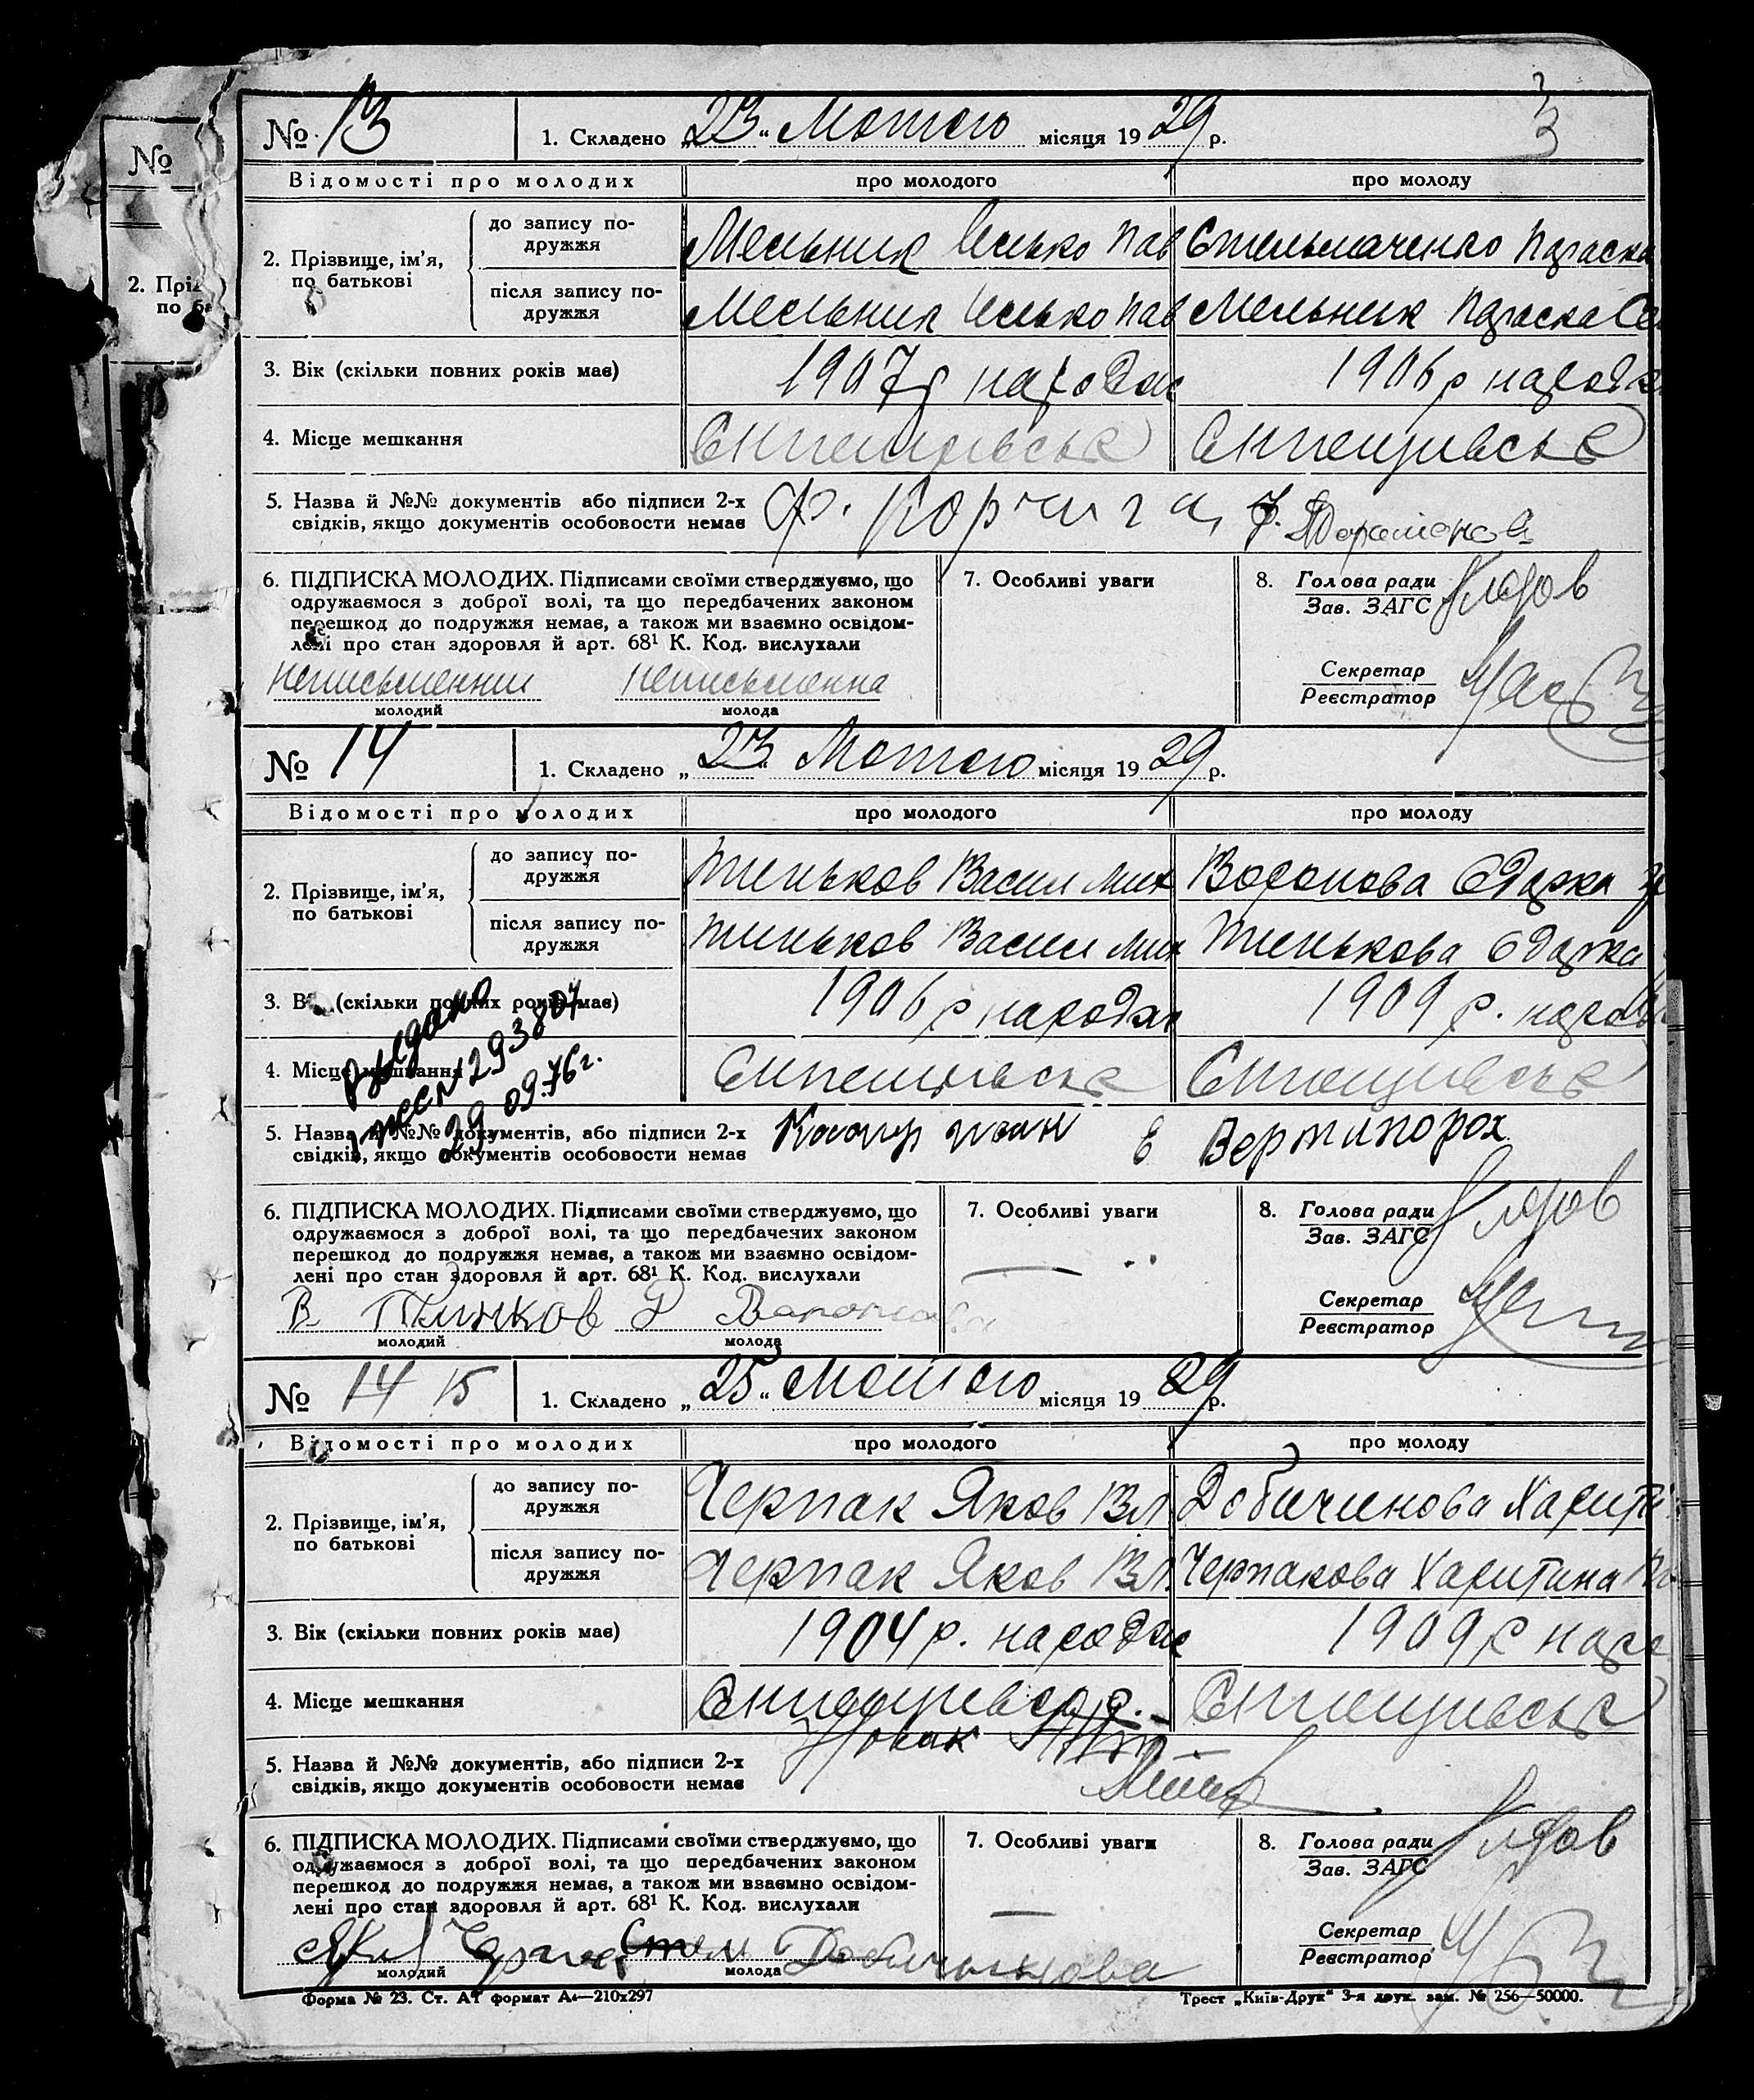 3
№ 13
1. Складено „23“ Лютого місяця 1929 р.
Відомості про молодих
про молодого
про молоду
2. Прізвище, ім’я, по батькові
до запису по-
дружжя
Мельник Ілько Пав
Стельмаченко Параска
після запису по-
дружжя
Мельник Ілько Пав
Мельник Параска Се
3. Вік (скільки повних років має)
1907 р народж
1906 р народж
4. Місце мешкання
5. Назва й №№ документів або підписи 2-х
свідків, якщо документів особовости немає
Ф. Корчига,
6. ПІДПИСКА МОЛОДИХ. Підписами своїми стверджуємо, що
одружаємося з доброї волі, та що передбачених законом
перешкод до подружжя немає, а також ми взаємно освідом-
лені про стан здоров’я й арт. 68¹ К. Код. вислухали
неписьменний
неписьменна
молодий
молода
7. Особливі уваги
8. Голова ради
Зав. ЗАГС
Секретар
Реєстратор
№ 14
1. Складено „23“ Лютого місяця 1929 р.
Відомості про молодих
про молодого
про молоду
2. Прізвище, ім’я,
по батькові
до запису по-
дружжя
Тиньков Васил Мих
Воронова Одарка
після запису по-
дружжя
Тиньков Васил Мих
Тинькова Одарка
3. Вік (скільки повних років має)
1906 р народж
1909 р. народж
4. Місце мешкання
Выдано
293807
29 09.76 г.
5. Назва й №№ документів, або підписи 2-х
свідків, якщо документів особовости немає
Е Вертипорох
6. ПІДПИСКА МОЛОДИХ. Підписами своїми стверджуємо, що
одружаємося з доброї волі, та що передбачених законом
перешкод до подружжя немає, а також ми взаємно освідом-
лені про стан здоровля й арт. 68¹ К. Код. вислухали
В Тинков
молодий
молода
7. Особливі уваги
8. Голова ради
Зав. ЗАГС
Секретар
Реєстратор
№ 14 15
1. Складено „25“ Лютого місяця 1929 р.
Відомості про молодих
про молодого
про молоду
2. Прізвище, ім’я,
по батькові
до запису по-
дружжя
Черпак Яков Вл
Добичинова Харити
після запису по-
дружжя
Черпак Яков Вл.
Черпакова Харитина
3. Вік (скільки повних років має)
1904 р. народж
1909 р наро
4. Місце мешкання
5. Назва й №№ документів, або підписи 2-х
свідків, якщо документів особовости немає
Новак
6. ПІДПИСКА МОЛОДИХ. Підписами своїми стверджуємо, що
одружаємося з доброї волі, та що передбачених законом
перешкод до подружжя немає, а також ми взаємно освідом-
лені про стан здоровля й арт. 68¹ К. Код. вислухали
молодий
молода
7. Особливі уваги
8. Голова ради
Зав. ЗАГС
Секретар
Реєстратор
Форма № 23. Ст. А1 формат А4—210х297
Трест „Київ-Друк“ 3-я друк. зам. № 256—50000.
№
2. Прі
по ба